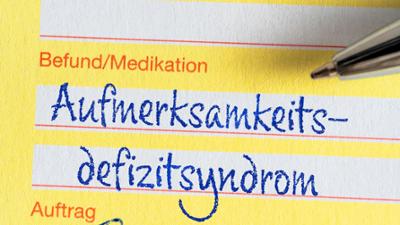 Befund/Medikation
Aufmerksamkeits-
defizitsyndrom
Auftrag